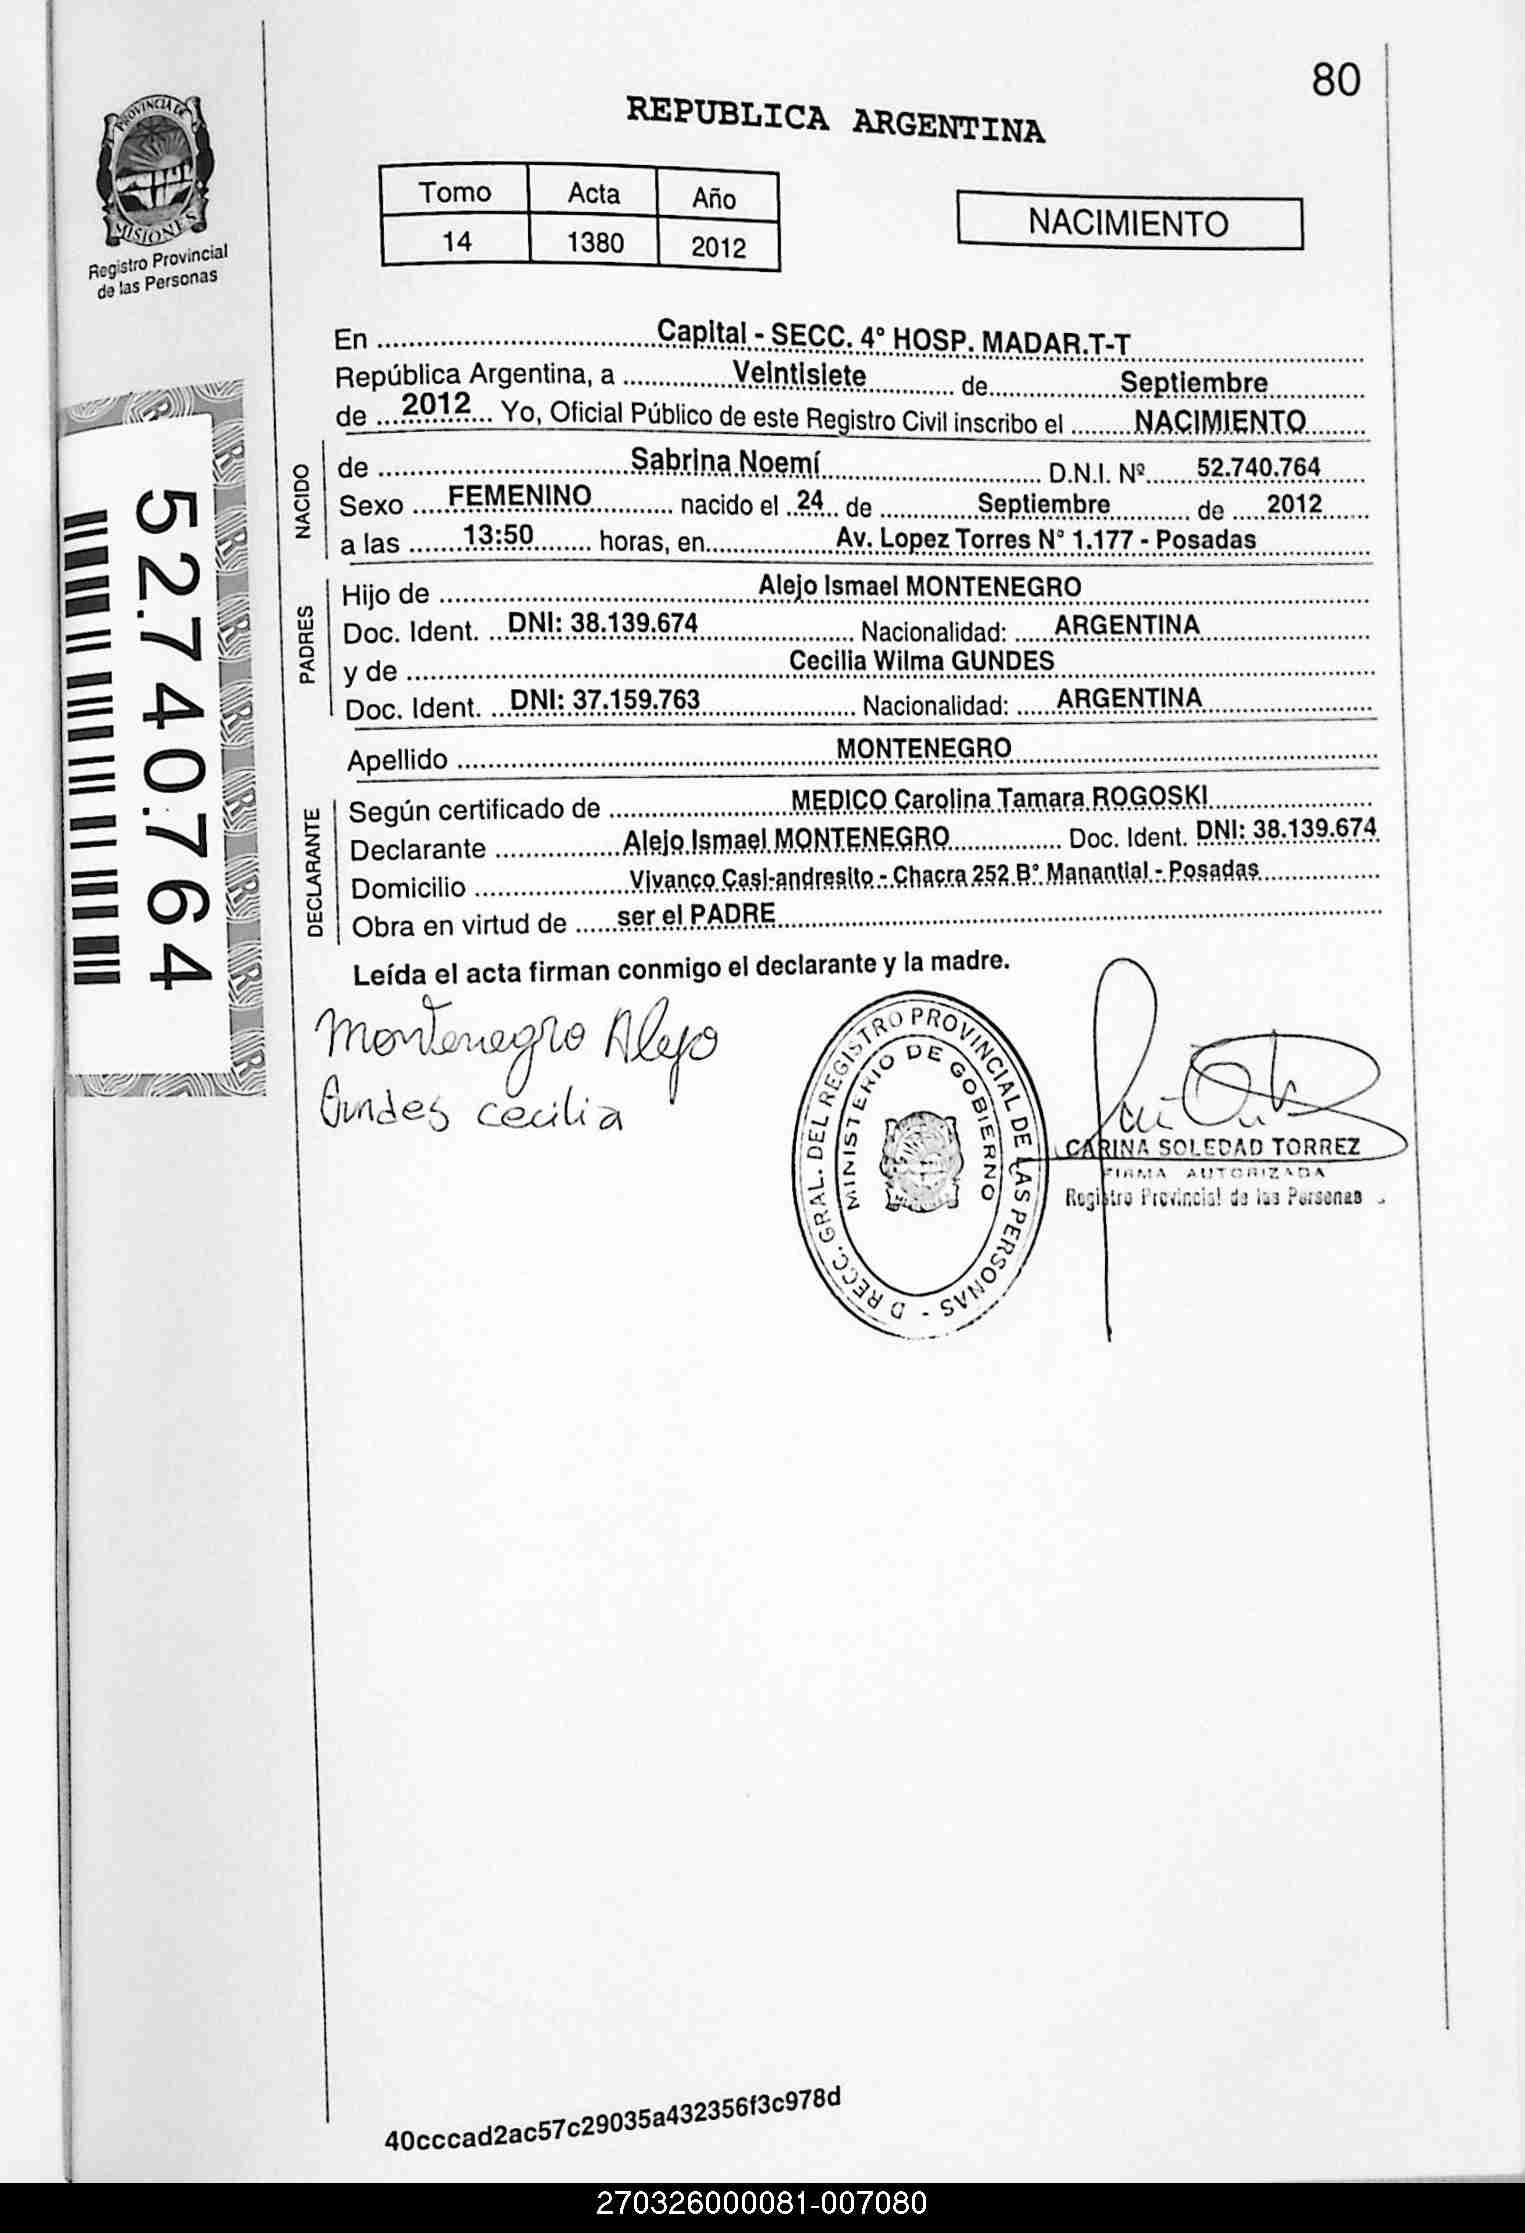 80
PROVINCIA DE
MISIONES
Registro Provincial
de las Personas
REPUBLICA ARGENTINA
Tomo Acta Año
14 1380 2012
NACIMIENTO
52.740.764
En Capital - SECC. 4° HOSP. MADAR.T-T
República Argentina, a Veintisiete de Septiembre
de 2012 Yo, Oficial Público de este Registro Civil inscribo el NACIMIENTO
NACIDO
de Sabrina Noemí D.N.I. Nº 52.740.764
Sexo FEMENINO nacido el 24 de Septiembre de 2012
a las 13:50 horas, en Av. Lopez Torres N° 1.177 - Posadas
PADRES
Hijo de Alejo Ismael MONTENEGRO
Doc. Ident. DNI: 38.139.674 Nacionalidad: ARGENTINA
y de Cecilia Wilma GUNDES
Doc. Ident. DNI: 37.159.763 Nacionalidad: ARGENTINA
Apellido MONTENEGRO
DECLARANTE
Según certificado de MEDICO Carolina Tamara ROGOSKI
Declarante Alejo Ismael MONTENEGRO Doc. Ident. DNI: 38.139.674
Domicilio Vivanco Casi-andresito - Chacra 252 B° Manantial - Posadas
Obra en virtud de ser el PADRE
Leída el acta firman conmigo el declarante y la madre.
Montenegro Alejo
Gundes cecilia
D RECC. GRAL. DEL REGISTRO PROVINCIAL DE LAS PERSONAS -
MINISTERIO DE GOBIERNO
CARINA SOLEDAD TORREZ
FIRMA AUTORIZADA
Registro Provincial de las Personas
40cccad2ac57c29035a432356f3c978d
270326000081-007080